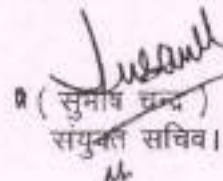 ( सुभाष चन्द्र )
संयुक्त सचिव।